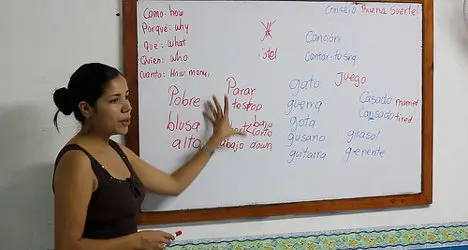 Como: how
Porque: why
Que: what
Quien: who
Cuanto: How many
Consejo Buena Suerte!
Canción
Cantar: to sing
Pobre
blusa
alto
Parar
to stop
bajo
corto
abajo down
gato
guerra
gota
gusano
guitarra
Juego
girasol
gerente
Casado married
Cansado tired